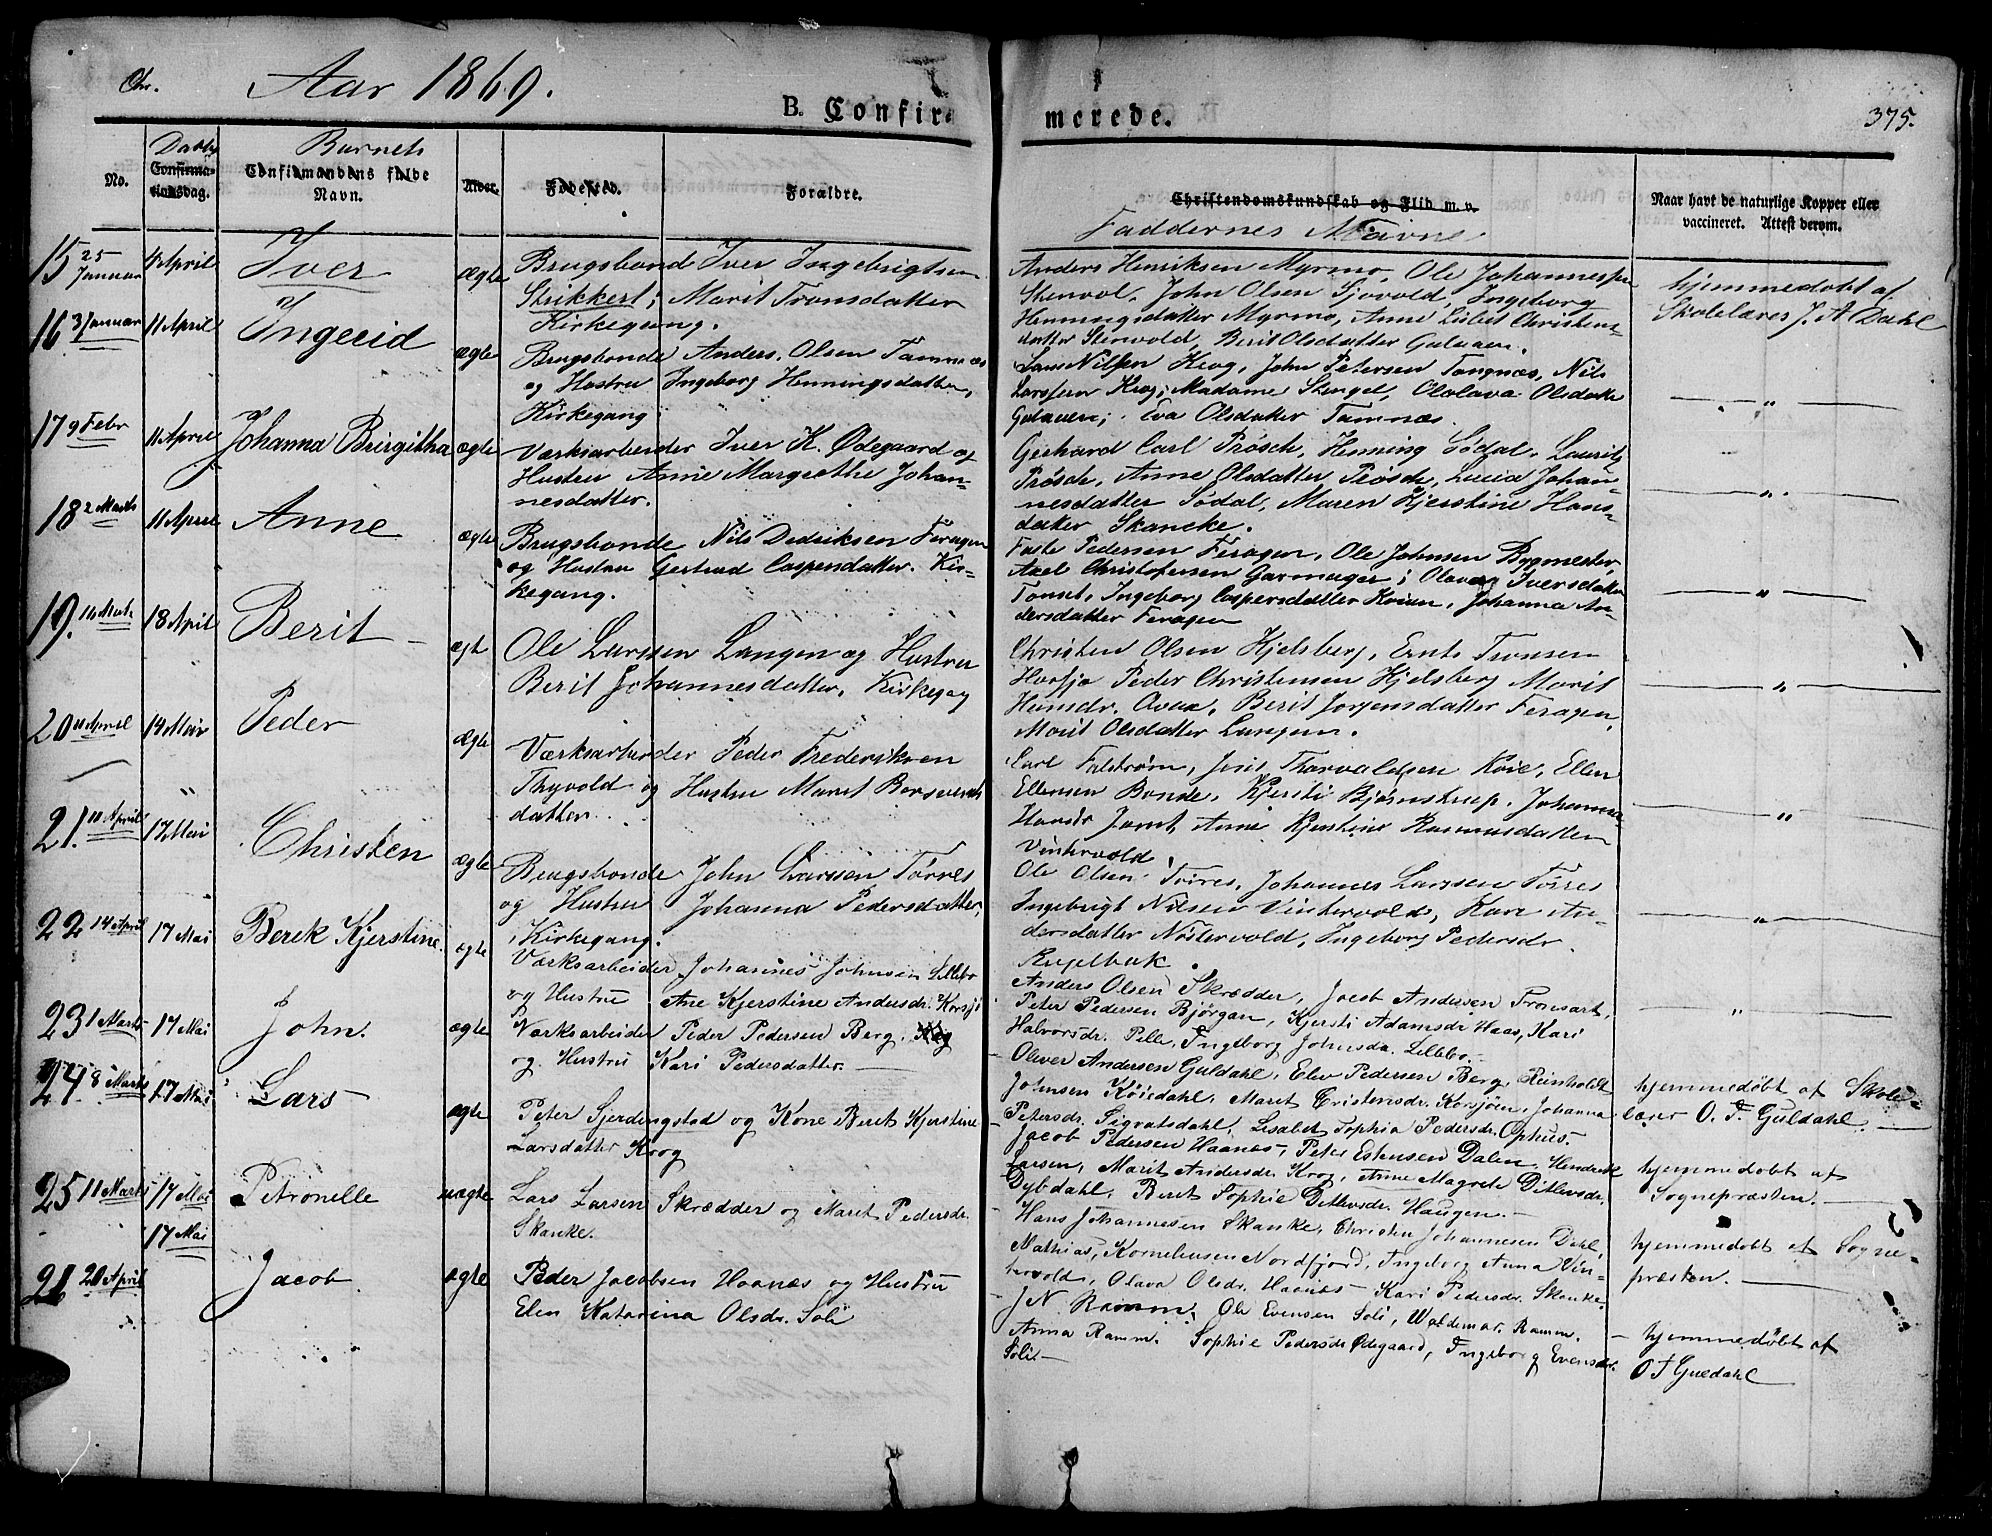 Chr.
Aar 1869.
B. Confir
merede.
375.
No.
Daabs
Confirmationsdag.
Barnets
Confirmandens fulde
Navn.
Alder.
Fødested.
Forældre.
Christendomskundskab og Flid m. v.
Faddernes Navne
Naar havt de naturlige Kopper eller
vaccineret. Attest derom.
15 25 Januar
4 April
Iver
ægte
Brugsbonde Iver Ingebrigtsen
Strikkert; Marit Tronsdatter
Kirkegang.
Anders Henriksen Myrmo, Ole Johannessen
Stenvol, John Olsen Sjøvold, Ingeborg
Henningsdatter Myrmo, Anne Lisbet Christens-
datter Stenvold, Berit Olsdatter Galaaen.
hjemmedøbt af
Skolelærer J. A. Dahl
16 3 Januar
11 April
Ingecid
ægte
Brugsbonde Anders Olsen Tamnæs
og Hustru Ingeborg Henningsdatter,
Kirkegang
Lars Nilsen Krog, John Petersen Tangnæs, Nils
Larssen Krog; Madame Stengel, Ololava Olsdatter
Galaaen; Eva Olsdatter Tamnæs.
— " —
17 9 Febr
11 April
Johanna Birgitha
ægte
Værksarbeider Iver K. Ødegaard og
Hustru Anne Margrethe Johan-
nesdatter.
Gerhard Carl Prøsch, Henning Sødal, Laurits
Prøsch, Anne Olsdatter Prøsch, Lucia Johan-
nesdatter Sødal, Maren Kjerstine Hans-
datter Skancke.
— " —
18 2 Marts
11 April
Anne
ægte
Brugsbonde Nils Dedriksen Feragen
og Hustru Gertrud Caspersdatter. Kir-
kegang.
Faste Pedersen Feragen, Ole Johnsen Bygmester
Axel Christofersen Garmager; Olava Iversdatter
Tonset, Ingeborg Caspersdatter Kvien, Johanna An-
dersdatter Feragen
— " —
19. 14 Marts
18 April
Berit
ægte
Ole Larssen Langen og Hustru
Berit Johannesdatter. Kirkegang
Christen Olsen Hjelsberg, Ernts Tronsen
Havsjø Peder Christensen Hjelsberg Marit
Hansdr. Avua, Berit Jorgensdatter Feragen,
Marit Olsdatter Langen.
— " —
20 11 April
14 Mai
Peder
ægte
Værksarbeider Peder Frederiksen
Thyvold og Hustru Maret
datter.
Carl Falstrøm, Jens Thorvaldsen Koie, Ellen
Ellensen Bonde, Kjersti Bjørnstrup, Johanna
Hansdr Jamt, Anne Kjerstine Rasmusdatter
Vintervold.
— " —
21. 10 April
17 Mai
Christen
ægte
Brugsbonde John Larssen Tørres
og Hustru Johanna Pedersdatter,
Kirkegang.
Ole Olsen Tørres, Johannes Larssen Tørres
Ingebrigt Nilsen Vintervold, Kari An-
dersdatter Nøstervold, Ingeborg Pedersdr.
Kugelbak.
— " —
22 14 April
17 Mai
Berek Kjerstine
ægte
Værksarbeider Johannes Johnsen Lillebo
og Hustru Ane Kjerstine Andersdr. Korsjø
Anders Olsen Skrædder, Jacob Andersen Tronsart,
Peter Pedersen Bjørgan, Kjersti Adamsdr Haas, Kari
Halvorsdr. Pelle, Ingeborg Johnsdr. Lillebo.—
— " —
23 1 Marts
17 Mai
John.
ægte
Værksarbeider Peder Pedersen Berg.
og Hustru Kari Pedersdatter.—
Oliver Andersen Guldahl, Elev Pedersen Berg, Reinholdt
Johnsen Kòiedahl, Maret Cristensdr. Korsjòen, Johanna
Petersdr. Sigvatsdahl, Lisabet Sophia Pedersdr. Ophus.—
hjemmedøbt af Skole-
lærer O. F. Guldahl.—
24 8 Marts
17 Mai
Lars
ægte
Peter Sjerdingstad og Kone Beret Kjerstine
Larsdatter Krog
Jacob Pedersen Haanes, Peter Estensen Dalen, Hendrik
Larsen, Marit Andersdr. Krog, Anne Magrete Ditlevsdr.
Dybdahl, Beret Sophie Ditlevsdr. Haugen.—
hjemmedøbt af
Sognepræsten.—
25 11 Marts
17 Mai
Petronelle
uægte
Lars Larsen Skrædder og Maret Pedersdr.
Skanke.
Hans Johannesen Skanke, Christen Johannesen Dahl,
Mathias Korneliusen Nordfjord, Ingeborg Anna Vin-
tervold, Olava Olsdr. Haanæs — Kari Pedersdr. Skanke.
hjemmedøbt af Sogne-
præsten.—
26 20 April
17 Mai
Jacob
ægte
Peder Jacobsen Haanæs og Hustru
Elen Katarina Olsdr. Soli
J N Ramm, Ole Evensen Soli, Waldemar Ramm.
Anna Ramm. Sophie Pedersdr Ødegaard, Ingeborg Evensdr.
Soli—
hjemmedøbt af
O F Guldahl